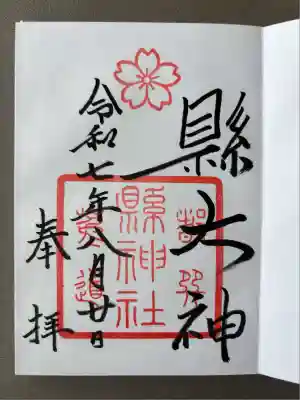 縣大神
縣神社
菟道
令和七年八月廿日
奉拝